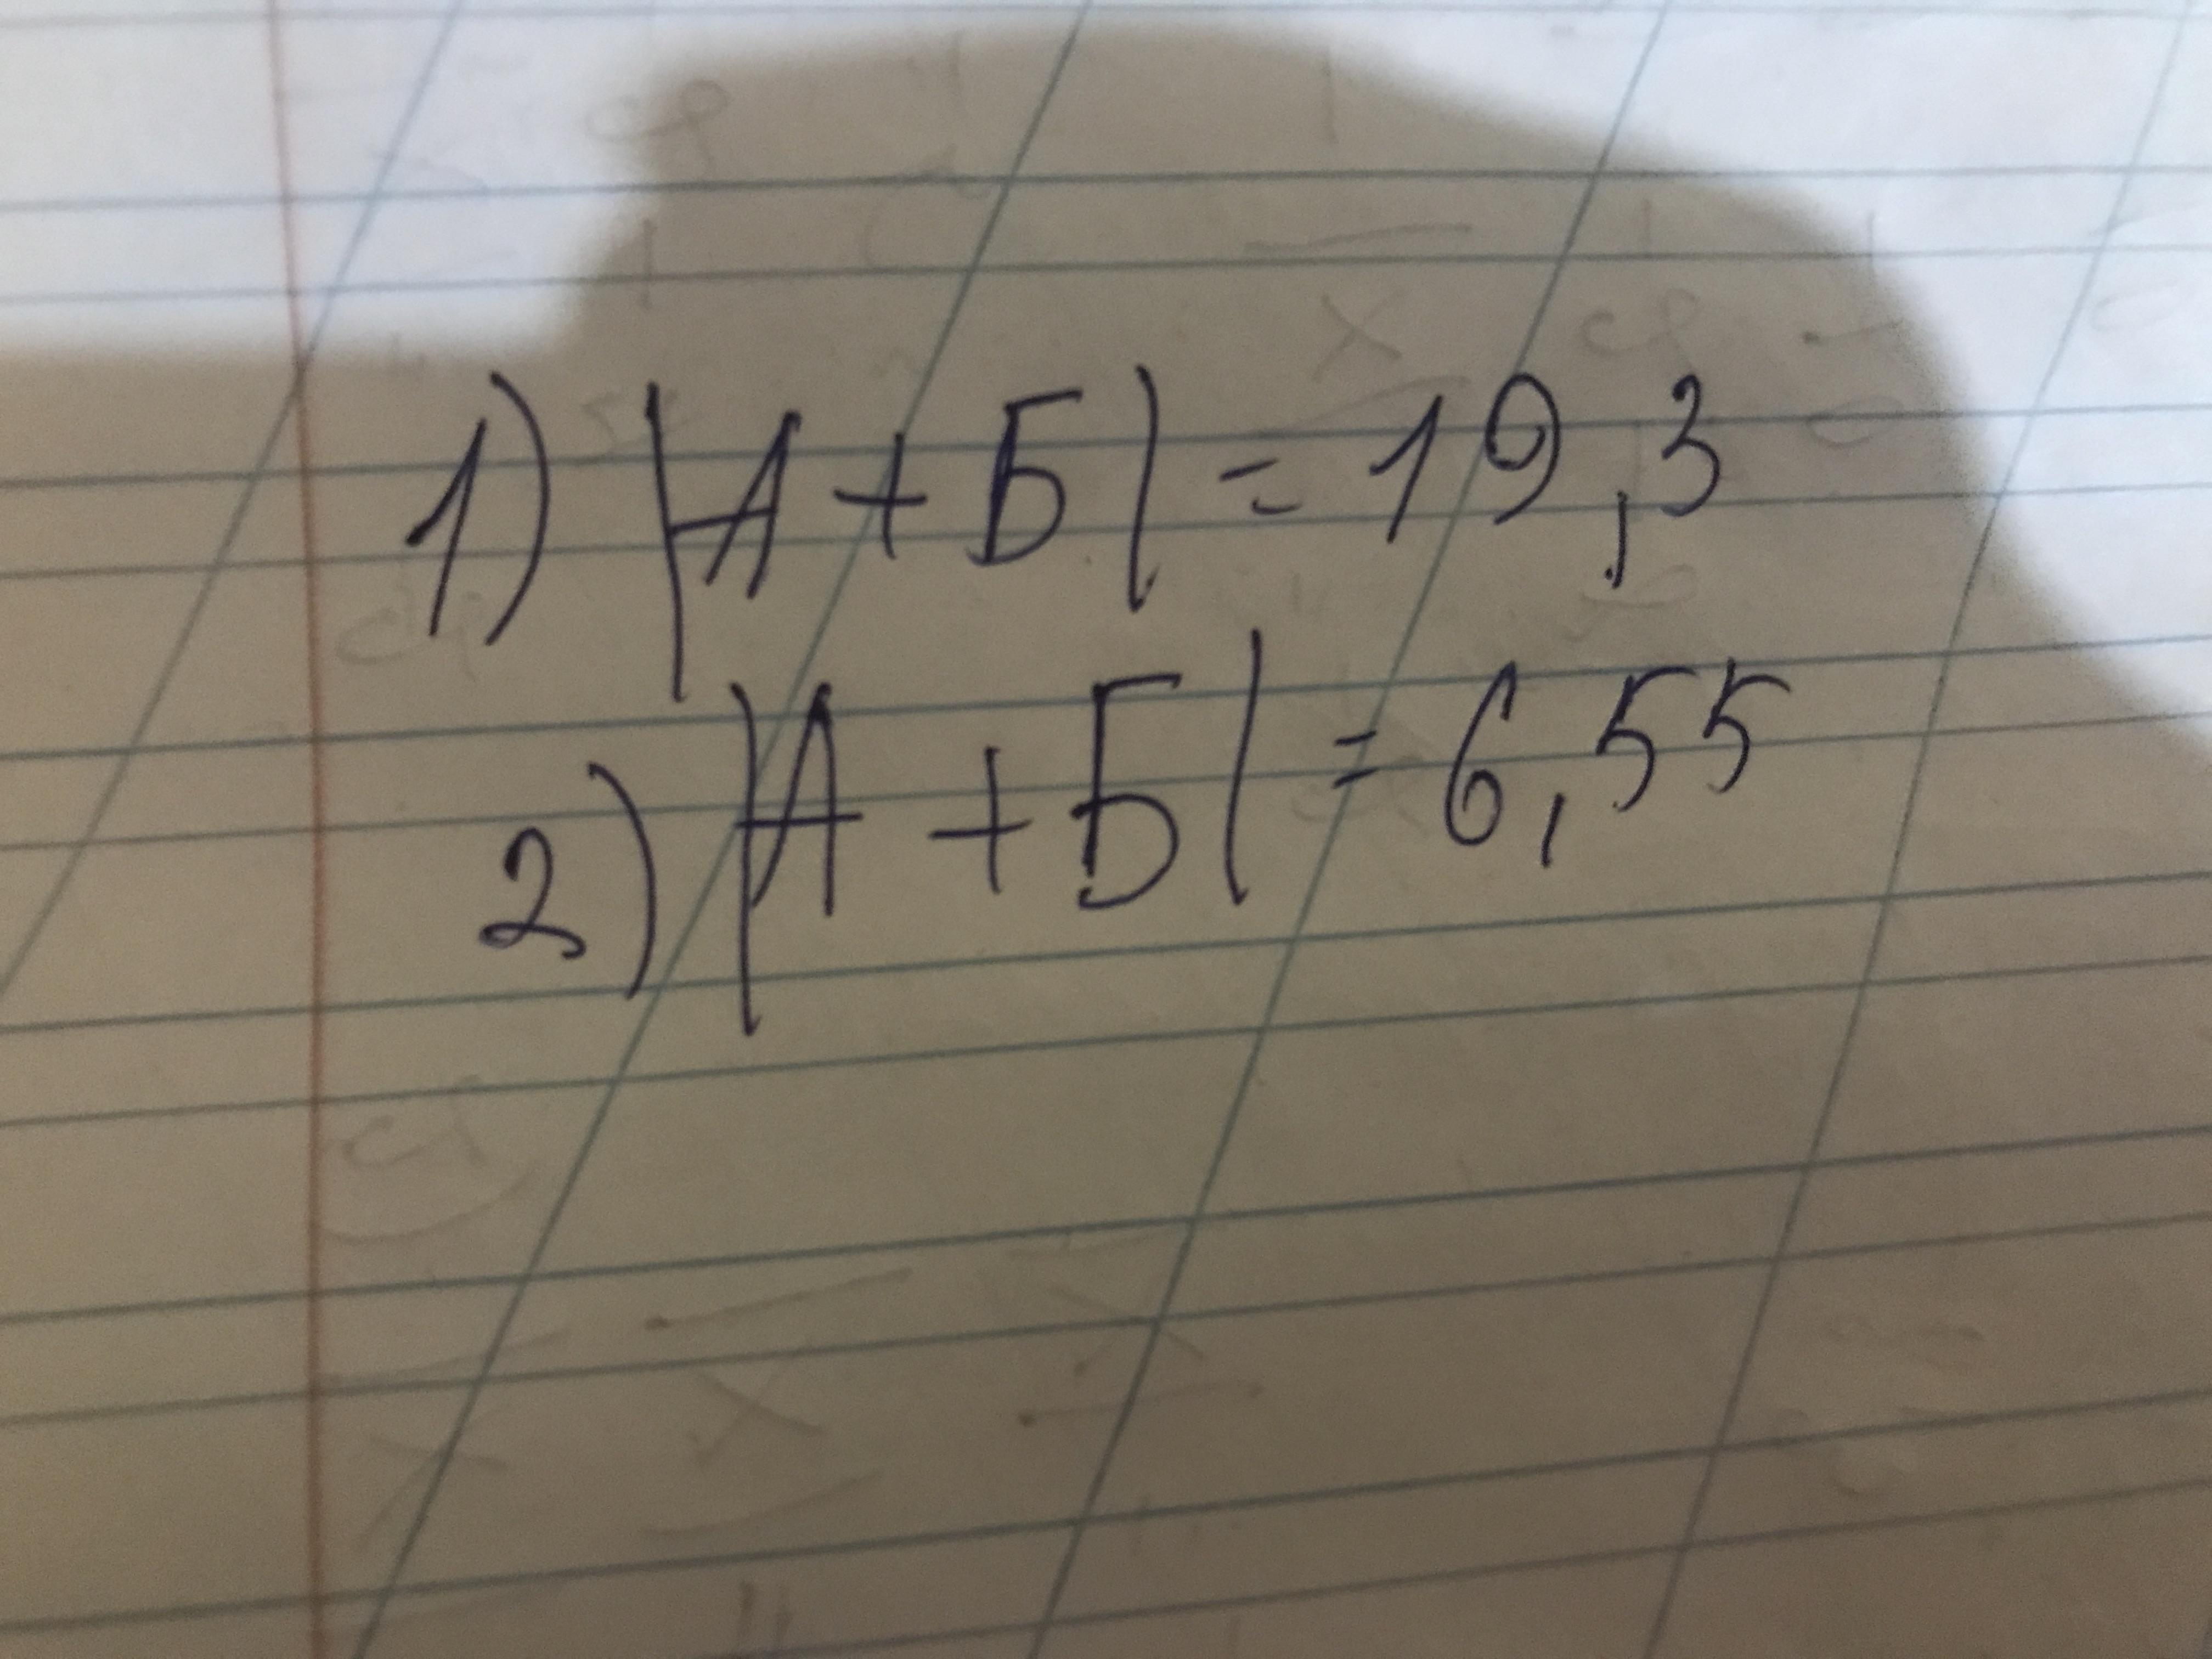 1) |А + Б| = 19,3
2) |А + Б| = 6,55